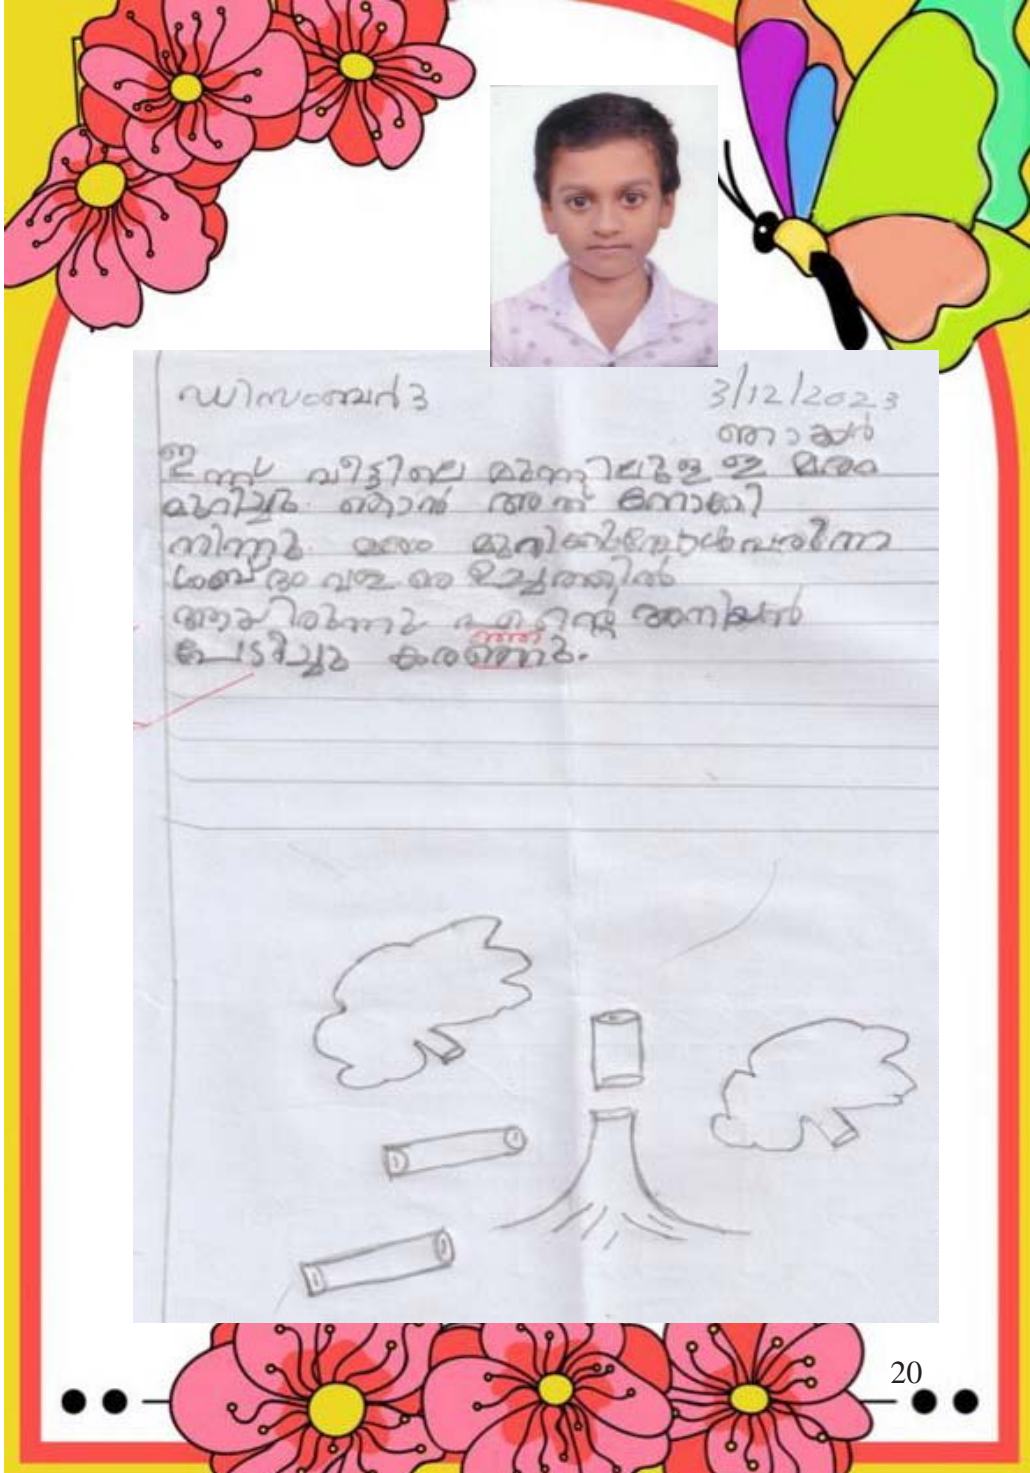 ഡിസംബർ 3
3/12/2023
ഞായർ
ഇന്ന് വീട്ടിലെ മുന്നിലുള്ള മരം
മുറിച്ചു. ഞാൻ അത് നോക്കി
നിന്നു. മരം മുറിക്കുമ്പോൾ വരുന്ന
ശബ്ദം വളരെ ഉച്ചത്തിൽ
ആയിരുന്നു എന്റെ അനിയൻ
ഞ്ഞു
പേടിച്ചു കരഞ്ഞു.
20